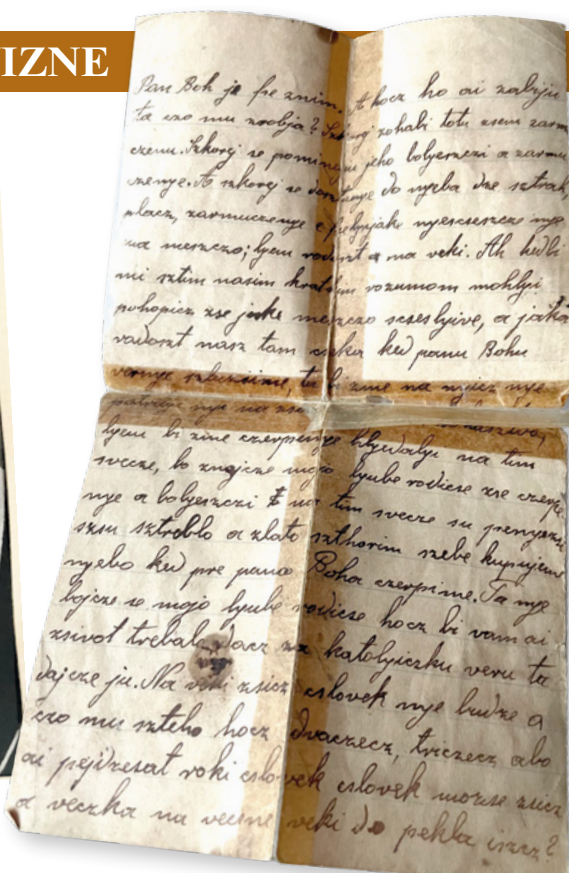 IZNE
Pan Boh je pre znim. A hocz ho ai zabiju
ta czo mu zrobja? Szkorej zohabi totu zsem zarm
czenu. Szkorej se pominyu jeho bolyeszczi a zarmu
czenye. A szkorej se dosztanye do nyeba dze sztrah,
placz, zarmuczenye nyescseszcze nye
ma meszczo; lyem radoszt a na veki. Ah kedbi
mi sztim nasim kratkim rozumom mohlyi
pohopicz zse jake meszczo scseslyive, a jaka
radoszt nasz tam cseka ked panu Bohu
vernye szluzsime, ta bi zme na nyicz nye
patreli nye na
lyem bi zme czerpenye hlyedalyi na tim
svecze, bo znajcze mojo lyube rodicse zse czerpe
nye a bolyeszczi na tim svecze su penyezi
szu sztreblo a zlato szthorim szebe kupujeme
nyebo ked pre pana Boha czerpime. Ta nye
bojcze se mojo lyube rodicse hocz bi vam ai
zsivot trebalo dacz za katolyiczku veru ta
dajcze ju. Na veki zsicz cslovek nye budze a
czo mu szteho hocz dvaczecz, triczecz abo
ai pejdzesat roki cslovek cslovek mozse zsicz
a veczka na vecsne veki do pekla iszcz?